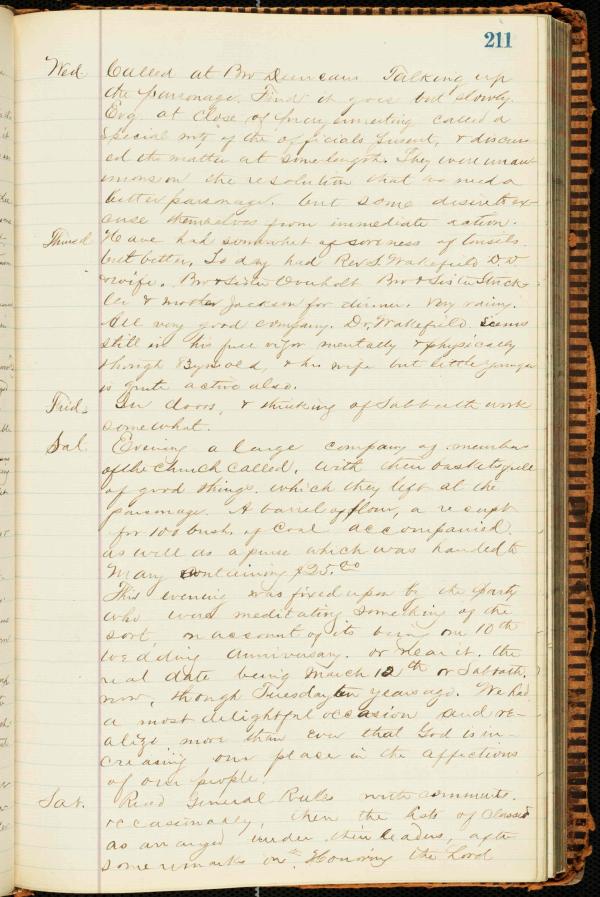 211
Wed. Called at Bro Duncans Talking up
the parsonage. Find it goes but slowly.
Evg. at close of pray. meeting called a
special mtg of the officials present, & discuss-
ed the matter at some length. They were unan-
imous on the resolution that we need a
better parsonage, but some desire to ex-
cuse themselves from immediate action.
Thursd. Have had somewhat of soreness of tonsils
but better. Today had Rev. S. Wakefield D.D
& wife. Bro & Sister Overholt Bro & Sister
& Mother Jackson for dinner. Very rainy.
All very good company. Dr. Wakefield seems
still in his full vigor mentally & physically
though 83 yrs old, & his wife but little younger
is quite active also.
Frid. In doors, & thinking of Sabbath work
somewhat.
Sat. Evening a large company of members
of the church called, with their baskets full
of good things, which they left at the
parsonage. A barrel of flour, a receipt
for 100 bush. of Coal accompanied.
as well as a purse which was handed to
Mary containing $25.00
This evening was fixed upon by the party
who were meditating something of the
sort, on account of its being our 10th
wedding anniversary, or near it. the
real date being March 12th or Sabbath.
now, though Tuesday ten years ago. We had
a most delightful occasion and re-
alize more than ever that God is in-
creasing our place in the affections
of our people!
Read General Rules with comments.
occasionally, then the lists of classes
as arranged under their leaders, after
some remarks on "Honoring the Lord